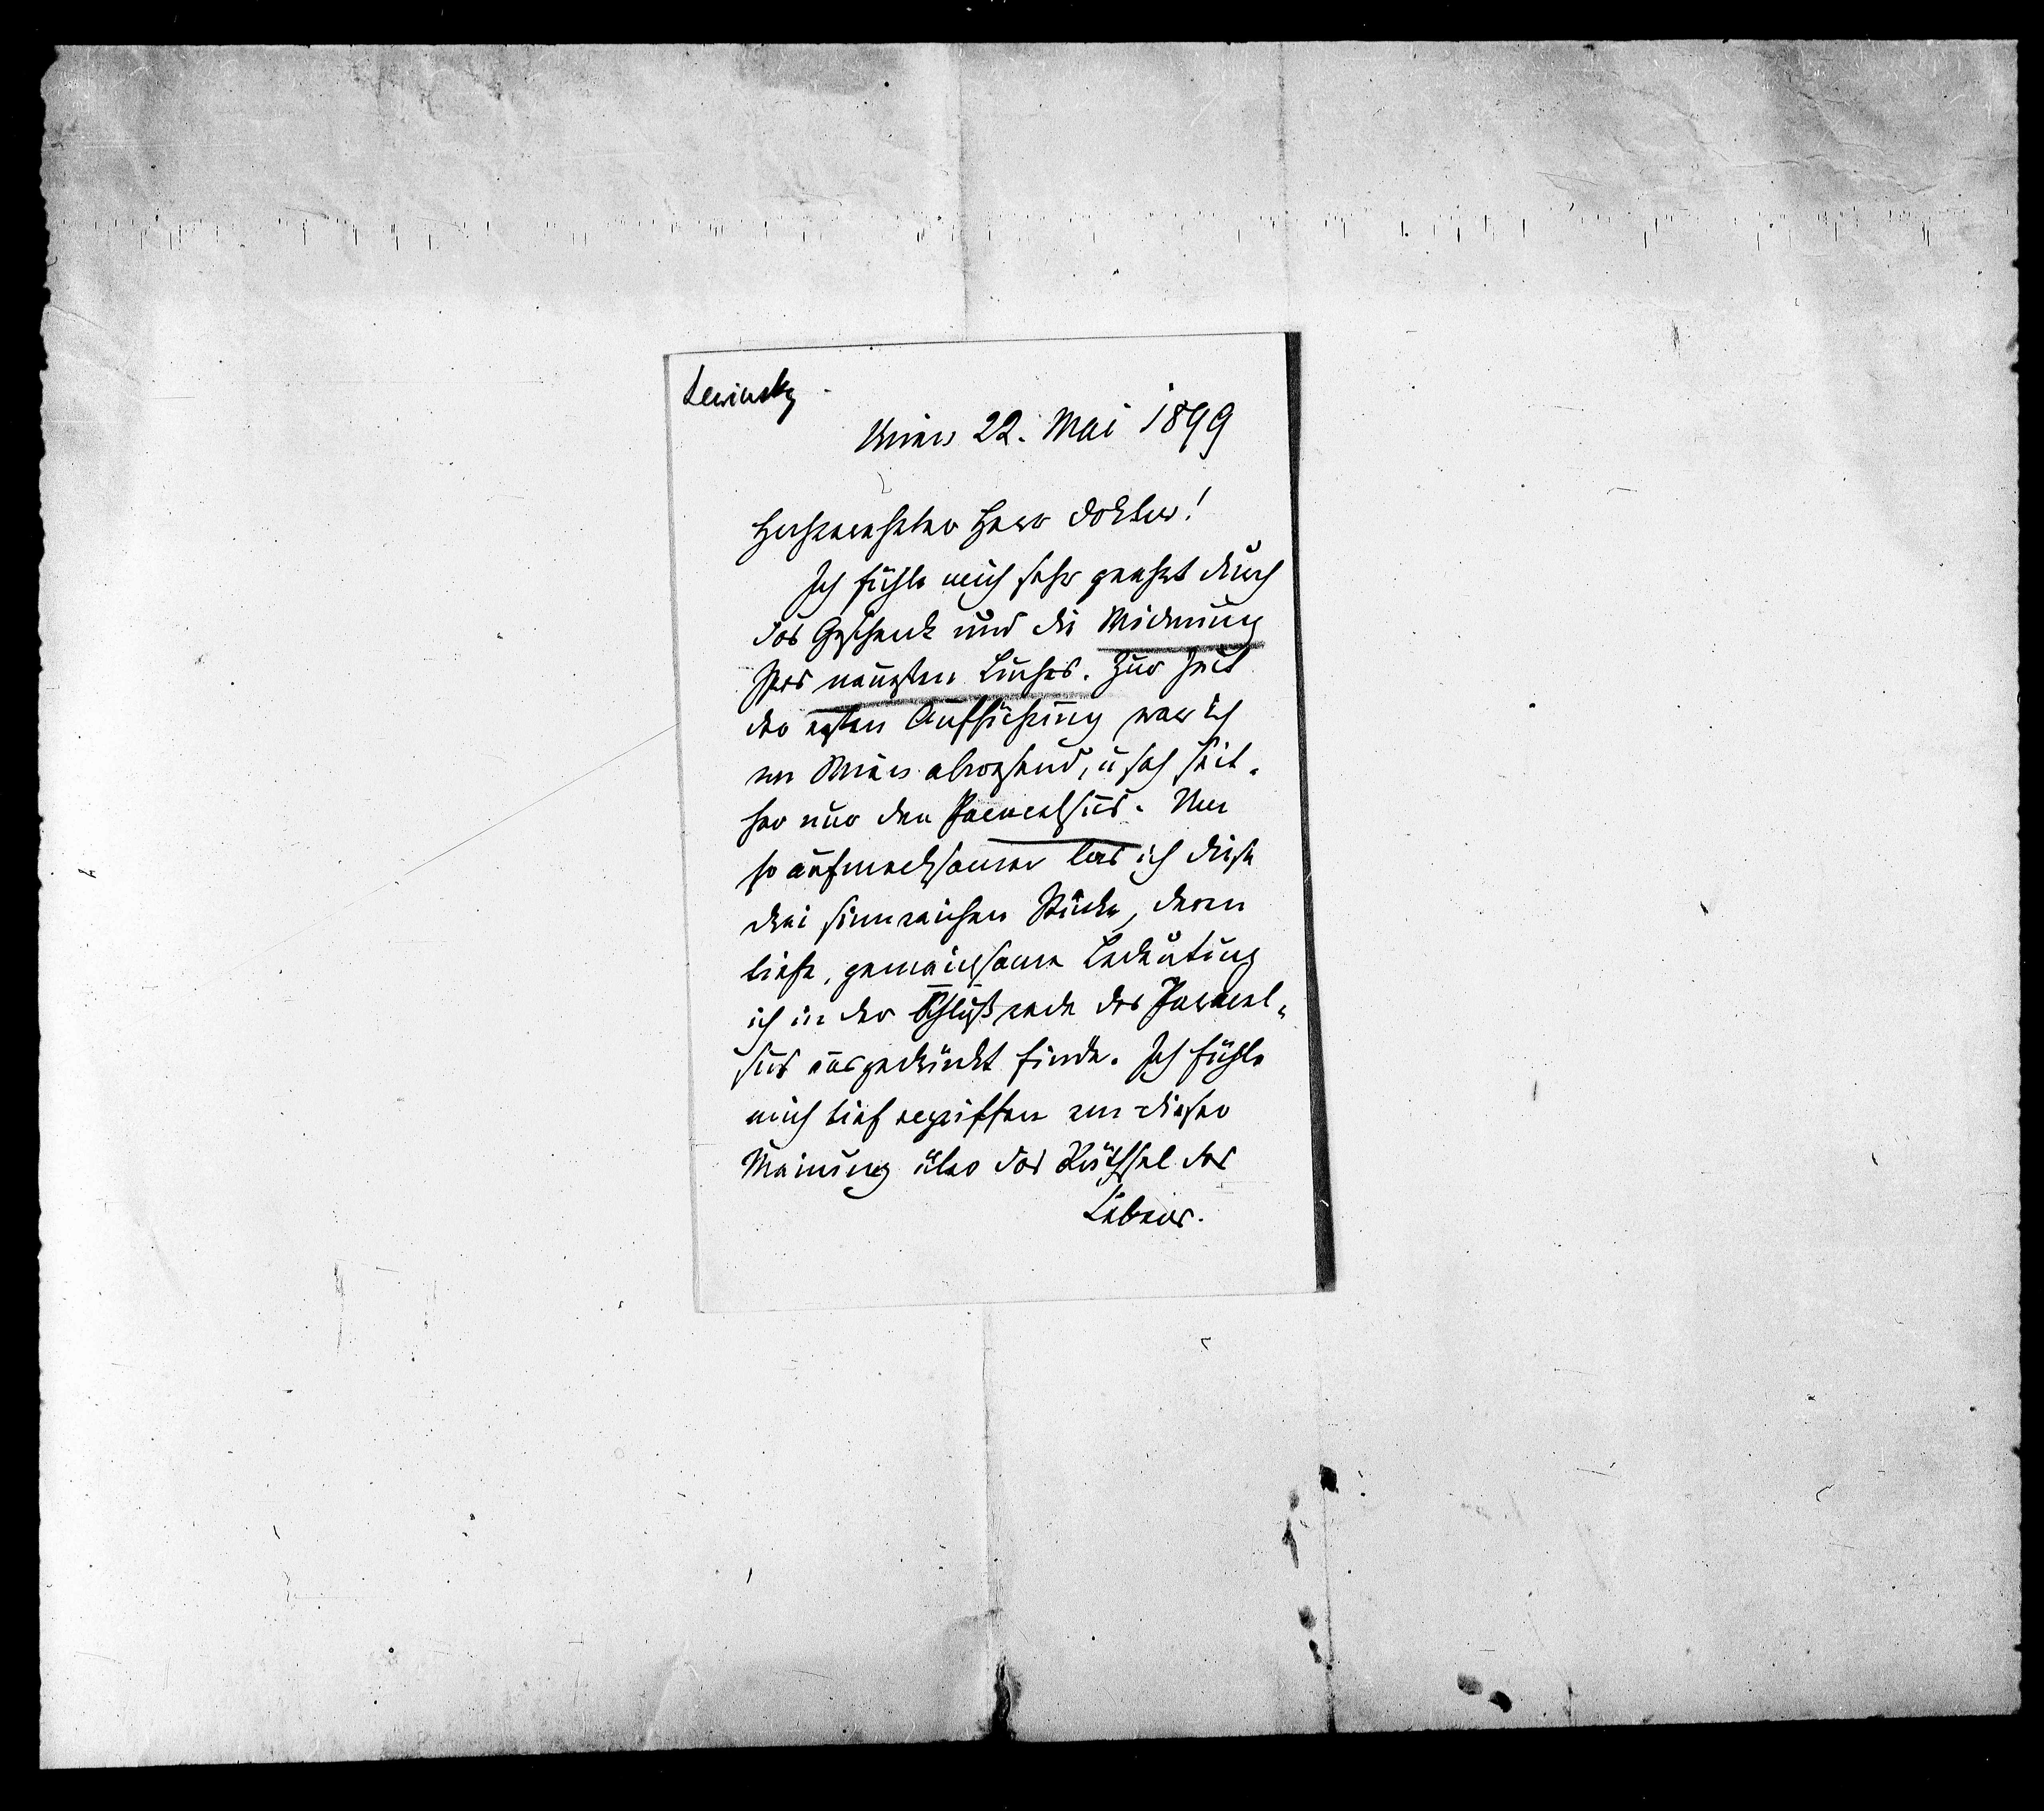 Lewinsky
Wien 22. Mai 1899
Hochverehrter Herr Doktor!
Ich fühle mich sehr geehrt durch
das Geschenk und die Widmung
Ihres neuesten Buches. Zur Zeit
der ersten Aufführung war ich
von Wien abwesend, u sah seit-
her nur den Paracelsus. Um
so aufmerksamer las ich diese
drei sinnreichen Stücke, deren
tiefe, gemeinsame Bedeutung
ich in der Schlußrede des Paracel-
sus ausgedrückt finde. Ich fühle
mich tief ergriffen von dieser
Meinung über das Räthsel des
Lebens.